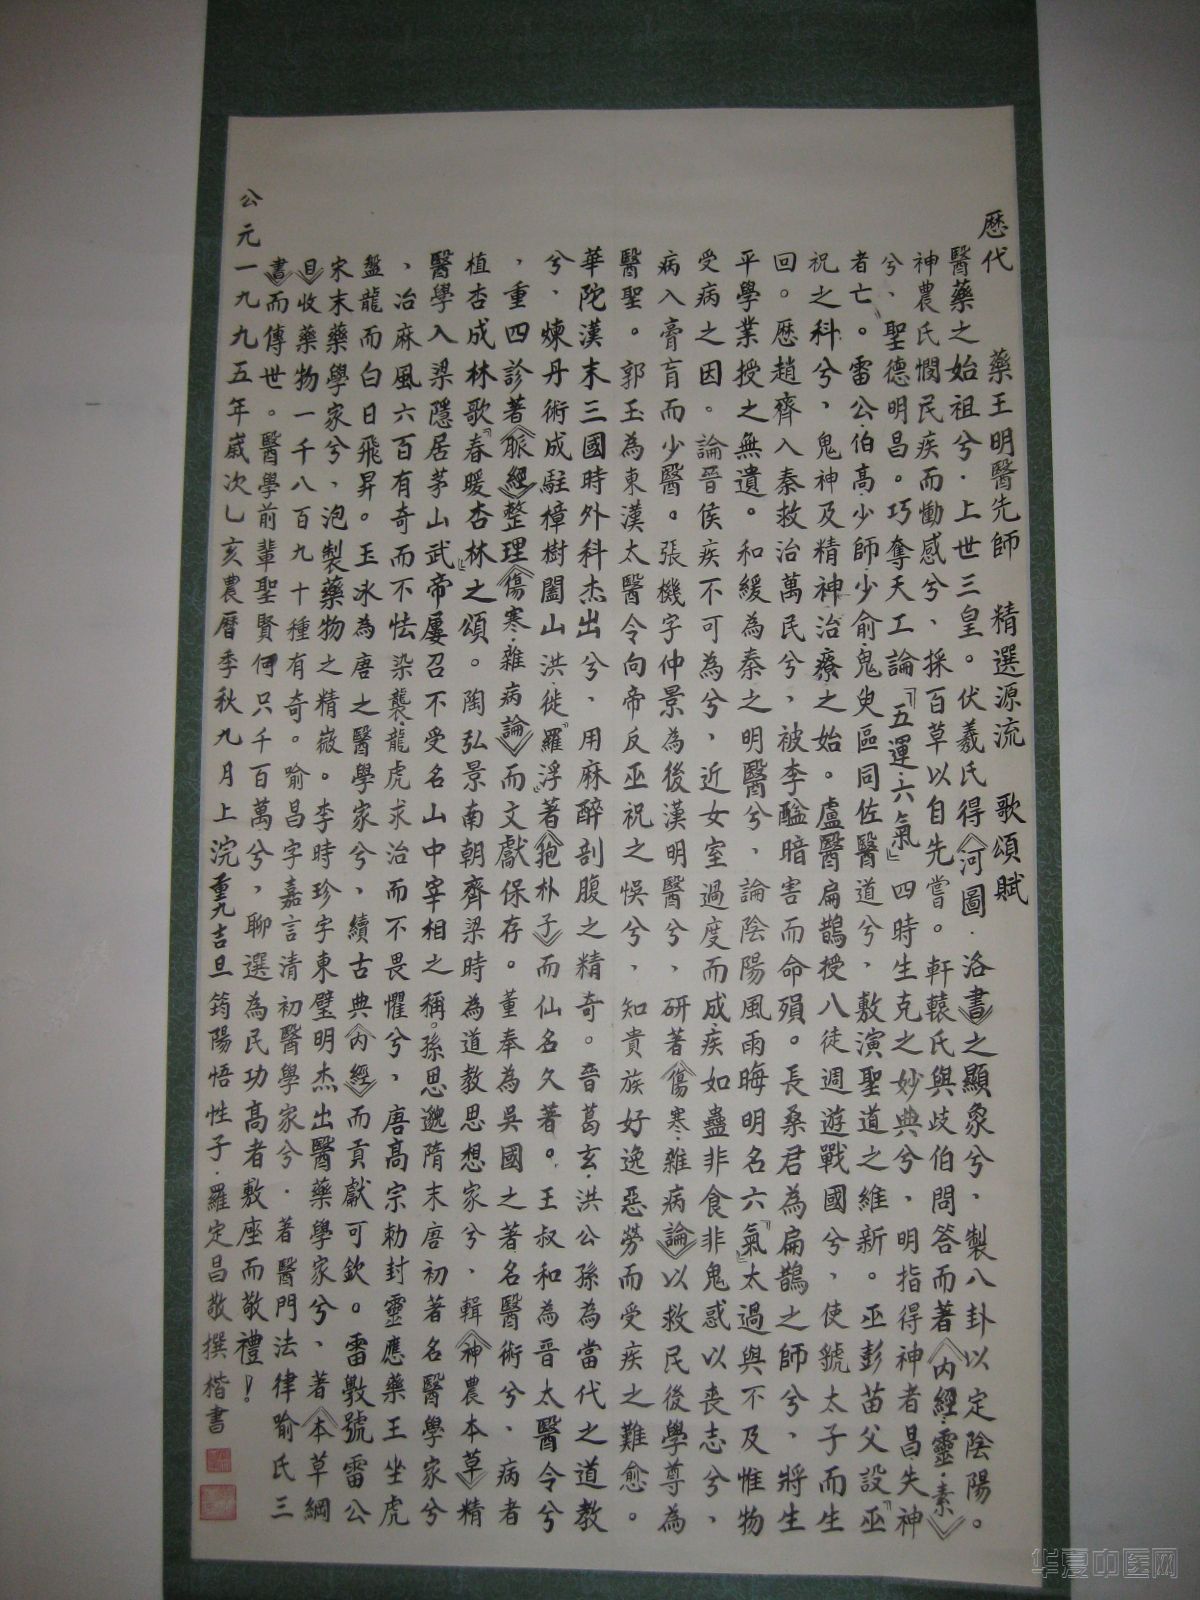 歷代 藥王明醫先師 精選源流 歌頌賦
醫藥之始祖兮．上世三皇。伏羲氏得《河圖．洛書》之顯象兮、製八卦以定陰陽。
神農氏憫民疾而慟感兮、採百草以自先嘗。軒轅氏與歧伯問答而著《內經．靈．素》
兮、聖德明昌。巧奪天工論『五運．六氣』四時生克之妙典兮、明指得神者昌．失神
者亡。雷公．伯高．少師．少俞．鬼臾區同佐醫道兮、敷演聖道之維新。巫彭苗父設『巫
祝之科兮、鬼神及精神治療之始。盧醫扁鵲授八徒週遊戰國兮、使虢太子而生
回。歷趙齊入秦救治萬民兮、被李醯暗害而命殞。長桑君為扁鵲之師兮、將生
平學業授之無遺。和緩為秦之明醫兮、論陰陽風雨晦明名六『氣』太過與不及惟物
受病之因。論晉侯疾不可為兮、近女室過度而成疾如蠱非食非鬼惑以喪志兮、
病入膏肓而少醫。張機字仲景為後漢明醫兮、研著《傷寒．雜病論》以救民後學尊為
醫聖。郭玉為東漢太醫令向帝反巫祝之悞兮、知貴族好逸惡勞而受疾之難愈。
華陀漢末三國時外科杰出兮、用麻醉剖腹之精奇。晉葛玄．洪公孫為當代之道教
兮、煉丹術成駐樟樹閣山．洪．徙『羅浮』著《抱朴子》而仙名久著。王叔和為晉太醫令兮
，重四診著《脈經》整理《傷寒．雜病論》而文獻保存。董奉為吳國之著名醫術兮、病者
植杏成林歌『春暖杏林』之頌。陶弘景南朝齊梁時為道教思想家兮、輯《神農本草》精
醫學入梁隱居茅山武帝屢召不受名山中宰相之稱。孫思邈隋末唐初著名醫學家兮
、治麻風六百有奇而不怯染襲．龍虎求治而不畏懼兮、唐高宗勅封靈應藥王坐虎
盤龍而白日飛昇。王冰為唐之醫學家兮、續古典《內經》而貢獻可欽。雷斆號雷公
宋末藥學家兮、泡製藥物之精微。李時珍字東璧明杰出醫藥學家兮、著《本草綱
目》收藥物一千八百九十種有奇。喻昌字嘉言清初醫學家兮．著醫門法律喻氏三
書》而傳世。醫學前輩聖賢何只千百萬兮，聊選為民功高者敷座而敬禮！
公元一九九五年歲次乙亥農曆季秋九月上浣重九吉旦筠陽悟性子．羅定昌敬撰楷書
华夏中医网